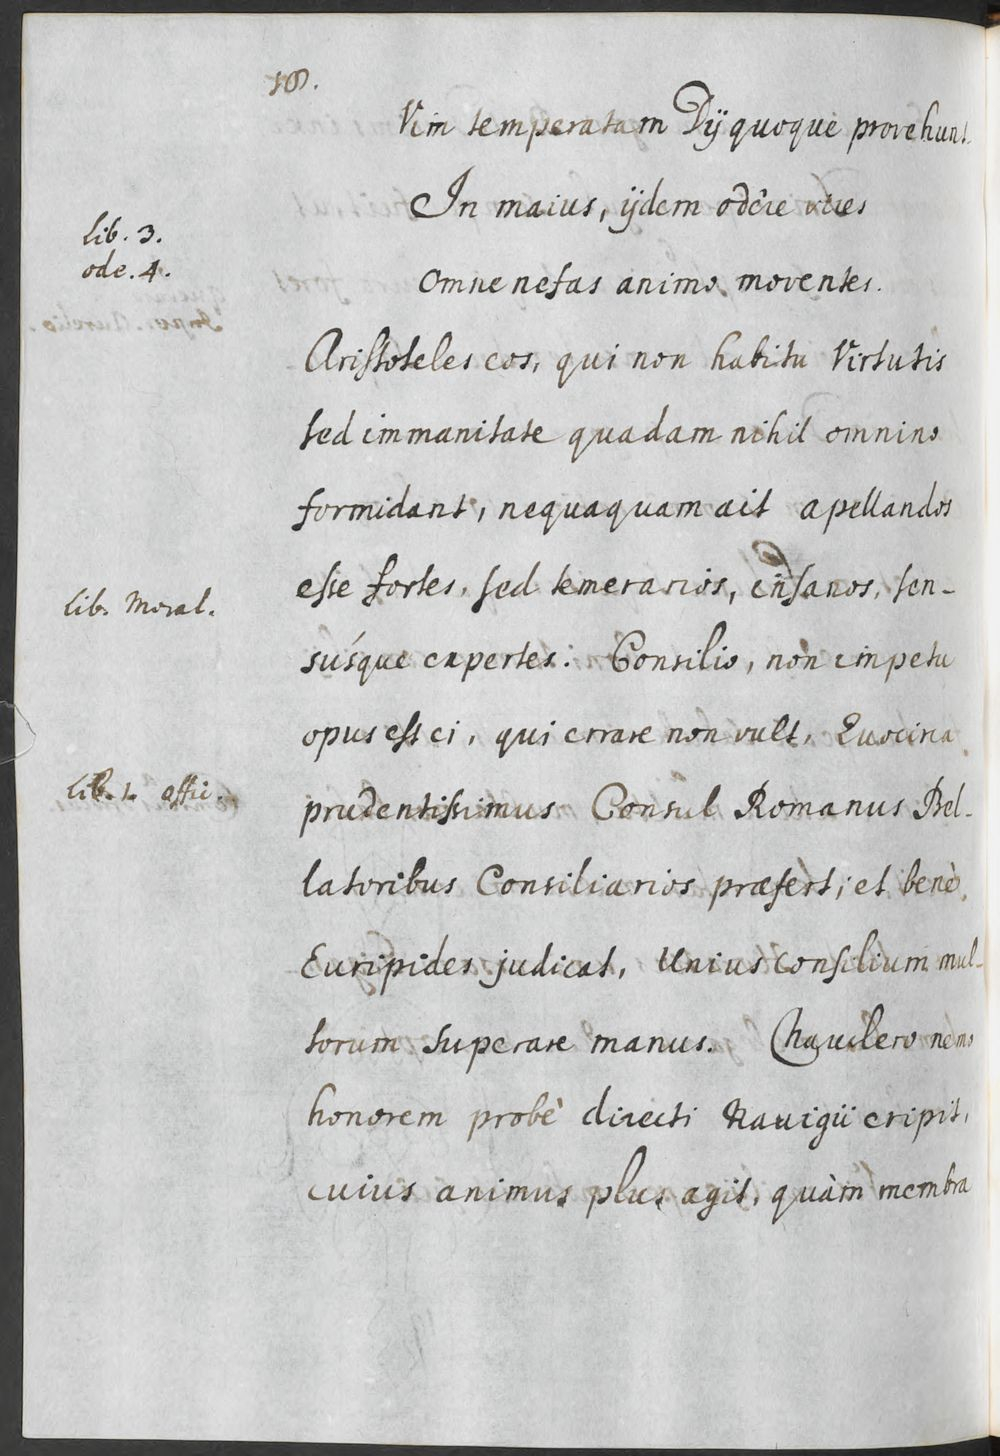 108.
Vim temperatam Dÿ quoque provehunt
In maius, ÿdem odêre vires
lib. 3.
ode. 4.
Omne nefas animo moventes.
Aristoteles eos, qui non habitu Virtutis
sed immanitate quadam nihil omnino
formidant, nequaquam ait apellandos
esse fortes, sed temerarios, insanos, sen-
lib. Moral.
súsque expertes: Consilio, non impetu
opus est ei, qui errare non vult, Quocirca
lib. 1. offic.
prudentissimus Consul Romanus Bel-
latoribus Consiliarios præfert; et benè
Euripides judicat, Unius consilium mul-
torum superare manus. nemo
honorem probè directi Navigÿ eripit,
cuius animus plus agit, quàm membra